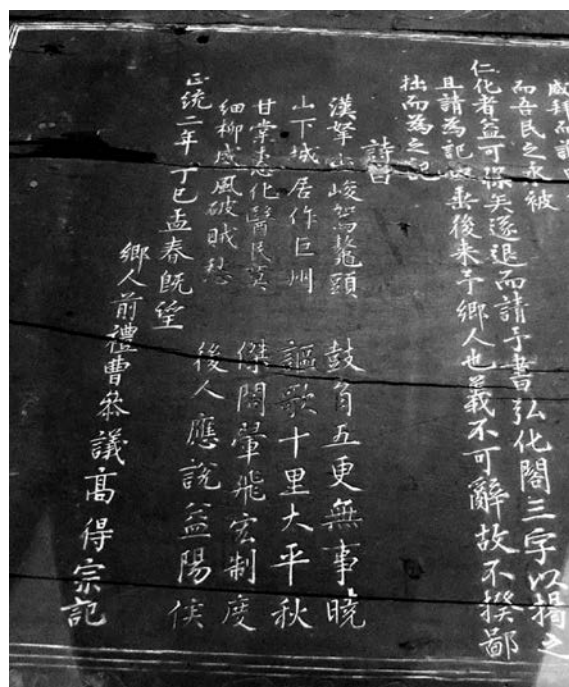 咸拜而請曰
而吾民之永被
仁化者益可保矣遂退而請予書弘化閣三字以揭之
且請為記以垂後来予鄉人也義不可辭故不揆鄙
拙而為之記
詩曰
漢拏峻駕鼇頭 鼓角五更無事曉
山下城居作巨州 謳歌十里大平秋
甘棠惠化醫民瘼 傑閣翬飛宏制度
細柳威風破賊愁 後人應說益陽侯
正統二年丁巳孟春既望
鄉人前禮曹叅議高得宗記